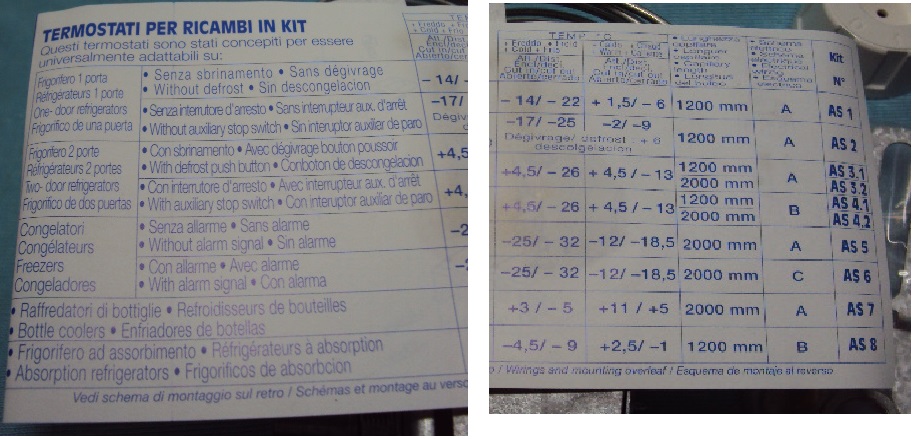 TERMOSTATI PER RICAMBI IN KIT
Questi termostati sono stati concepiti per essere
universalmente adattabili su:
Frigorifero 1 porta
Réfrigérateurs 1 porte
One- door refrigerators
Frigorifico de una puerta
• Senza sbrinamento • Sans dégivrage
• Without defrost • Sin descongelacion
• Senza interrutore d'arresto • Sans interrupteur aux. d'arrêt
• Without auxiliary stop switch • Sin interuptor auxiliar de paro
Frigorifero 2 porte
Réfrigérateurs 2 portes
Two- door refrigerators
Frigorifico de dos puertas
• Con sbrinamento • Avec dégivrage bouton poussoir
• With defrost push button • Con boton de descongelación
• Con interrutore d'arresto • Avec interrupteur aux. d'arrêt
• With auxiliary stop switch • Con interuptor auxiliar de paro
Congelatori
Congélateurs
Freezers
Congeladores
• Senza allarme • Sans alarme
• Without alarm signal • Sin alarme
• Con allarme • Avec alarme
• With alarm signal • Con alarma
• Raffredatori di bottiglie • Refroidisseurs de bouteilles
• Bottle coolers • Enfriadores de botellas
• Frigorifero ad assorbimento • Réfrigérateurs à absorption
• Absorption refrigerators • Frigorificos de absorbcion
Vedi schema di montaggio sul retro / Schémas et montage au verso
– 14/ –
–17/
Dégiv
+4,5
+4,
–2
–2
Kit
N°
– 14/ – 22 + 1,5/ – 6 1200 mm A AS 1
–17/ –25 –2/ –9
Dégivrage/ defrost + 6
descolgelacion
1200 mm A AS 2
+4,5/ – 26 + 4,5 / – 13 1200 mm 2000 mm A AS 3.1 AS 3.2
+4,5/ – 26 + 4,5 / – 13 1200 mm 2000 mm B AS 4.1 AS 4.2
–25/ – 32 –12/ –18,5 2000 mm A AS 5
–25/ – 32 –12/ –18,5 2000 mm C AS 6
+3 / – 5 +11 / +5 2000 mm A AS 7
–4,5/ – 9 +2,5/ –1 1200 mm B AS 8
/ Wirings and mounting overleaf / Esquema de montaje al reverso